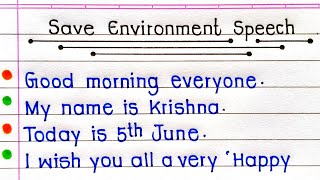 Save Environment Speech
Good morning everyone.
My name is Krishna.
Today is 5th June.
I wish you all a very 'Happy